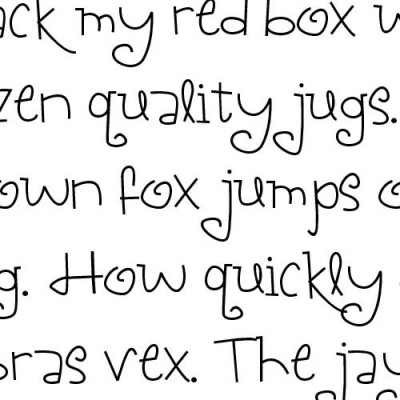 ack my red box w
zen quality jugs.
own fox jumps o
g. How quickly
bras vex. The jay